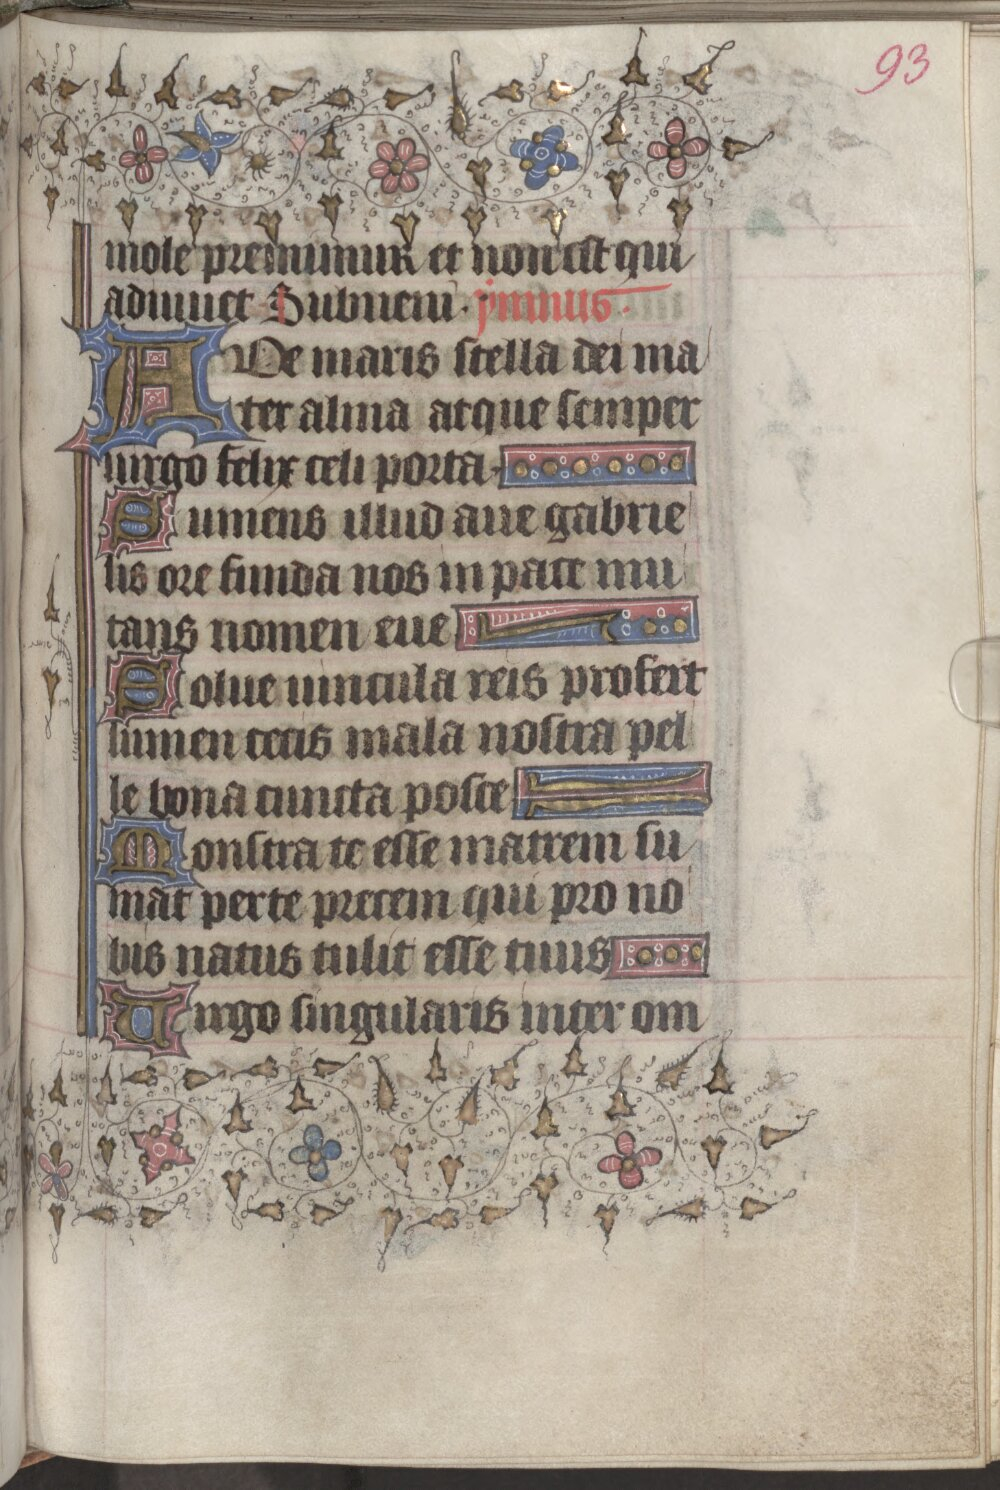 93
mole premimur et non est qui
adiuuet Subueni. ymnus.
AVe maris stella dei ma
ter alma atque semper
uirgo felix celi porta
Sumens illud aue gabrie
lis ore funda nos in pace mu
tans nomen eue
Solue uincula reis profert
lumen cecis mala nostra pel
le bona cuncta posce
Monstra te esse matrem su
mat per te precem qui pro no
bis natus tulit esse tuus
Uirgo singularis inter om